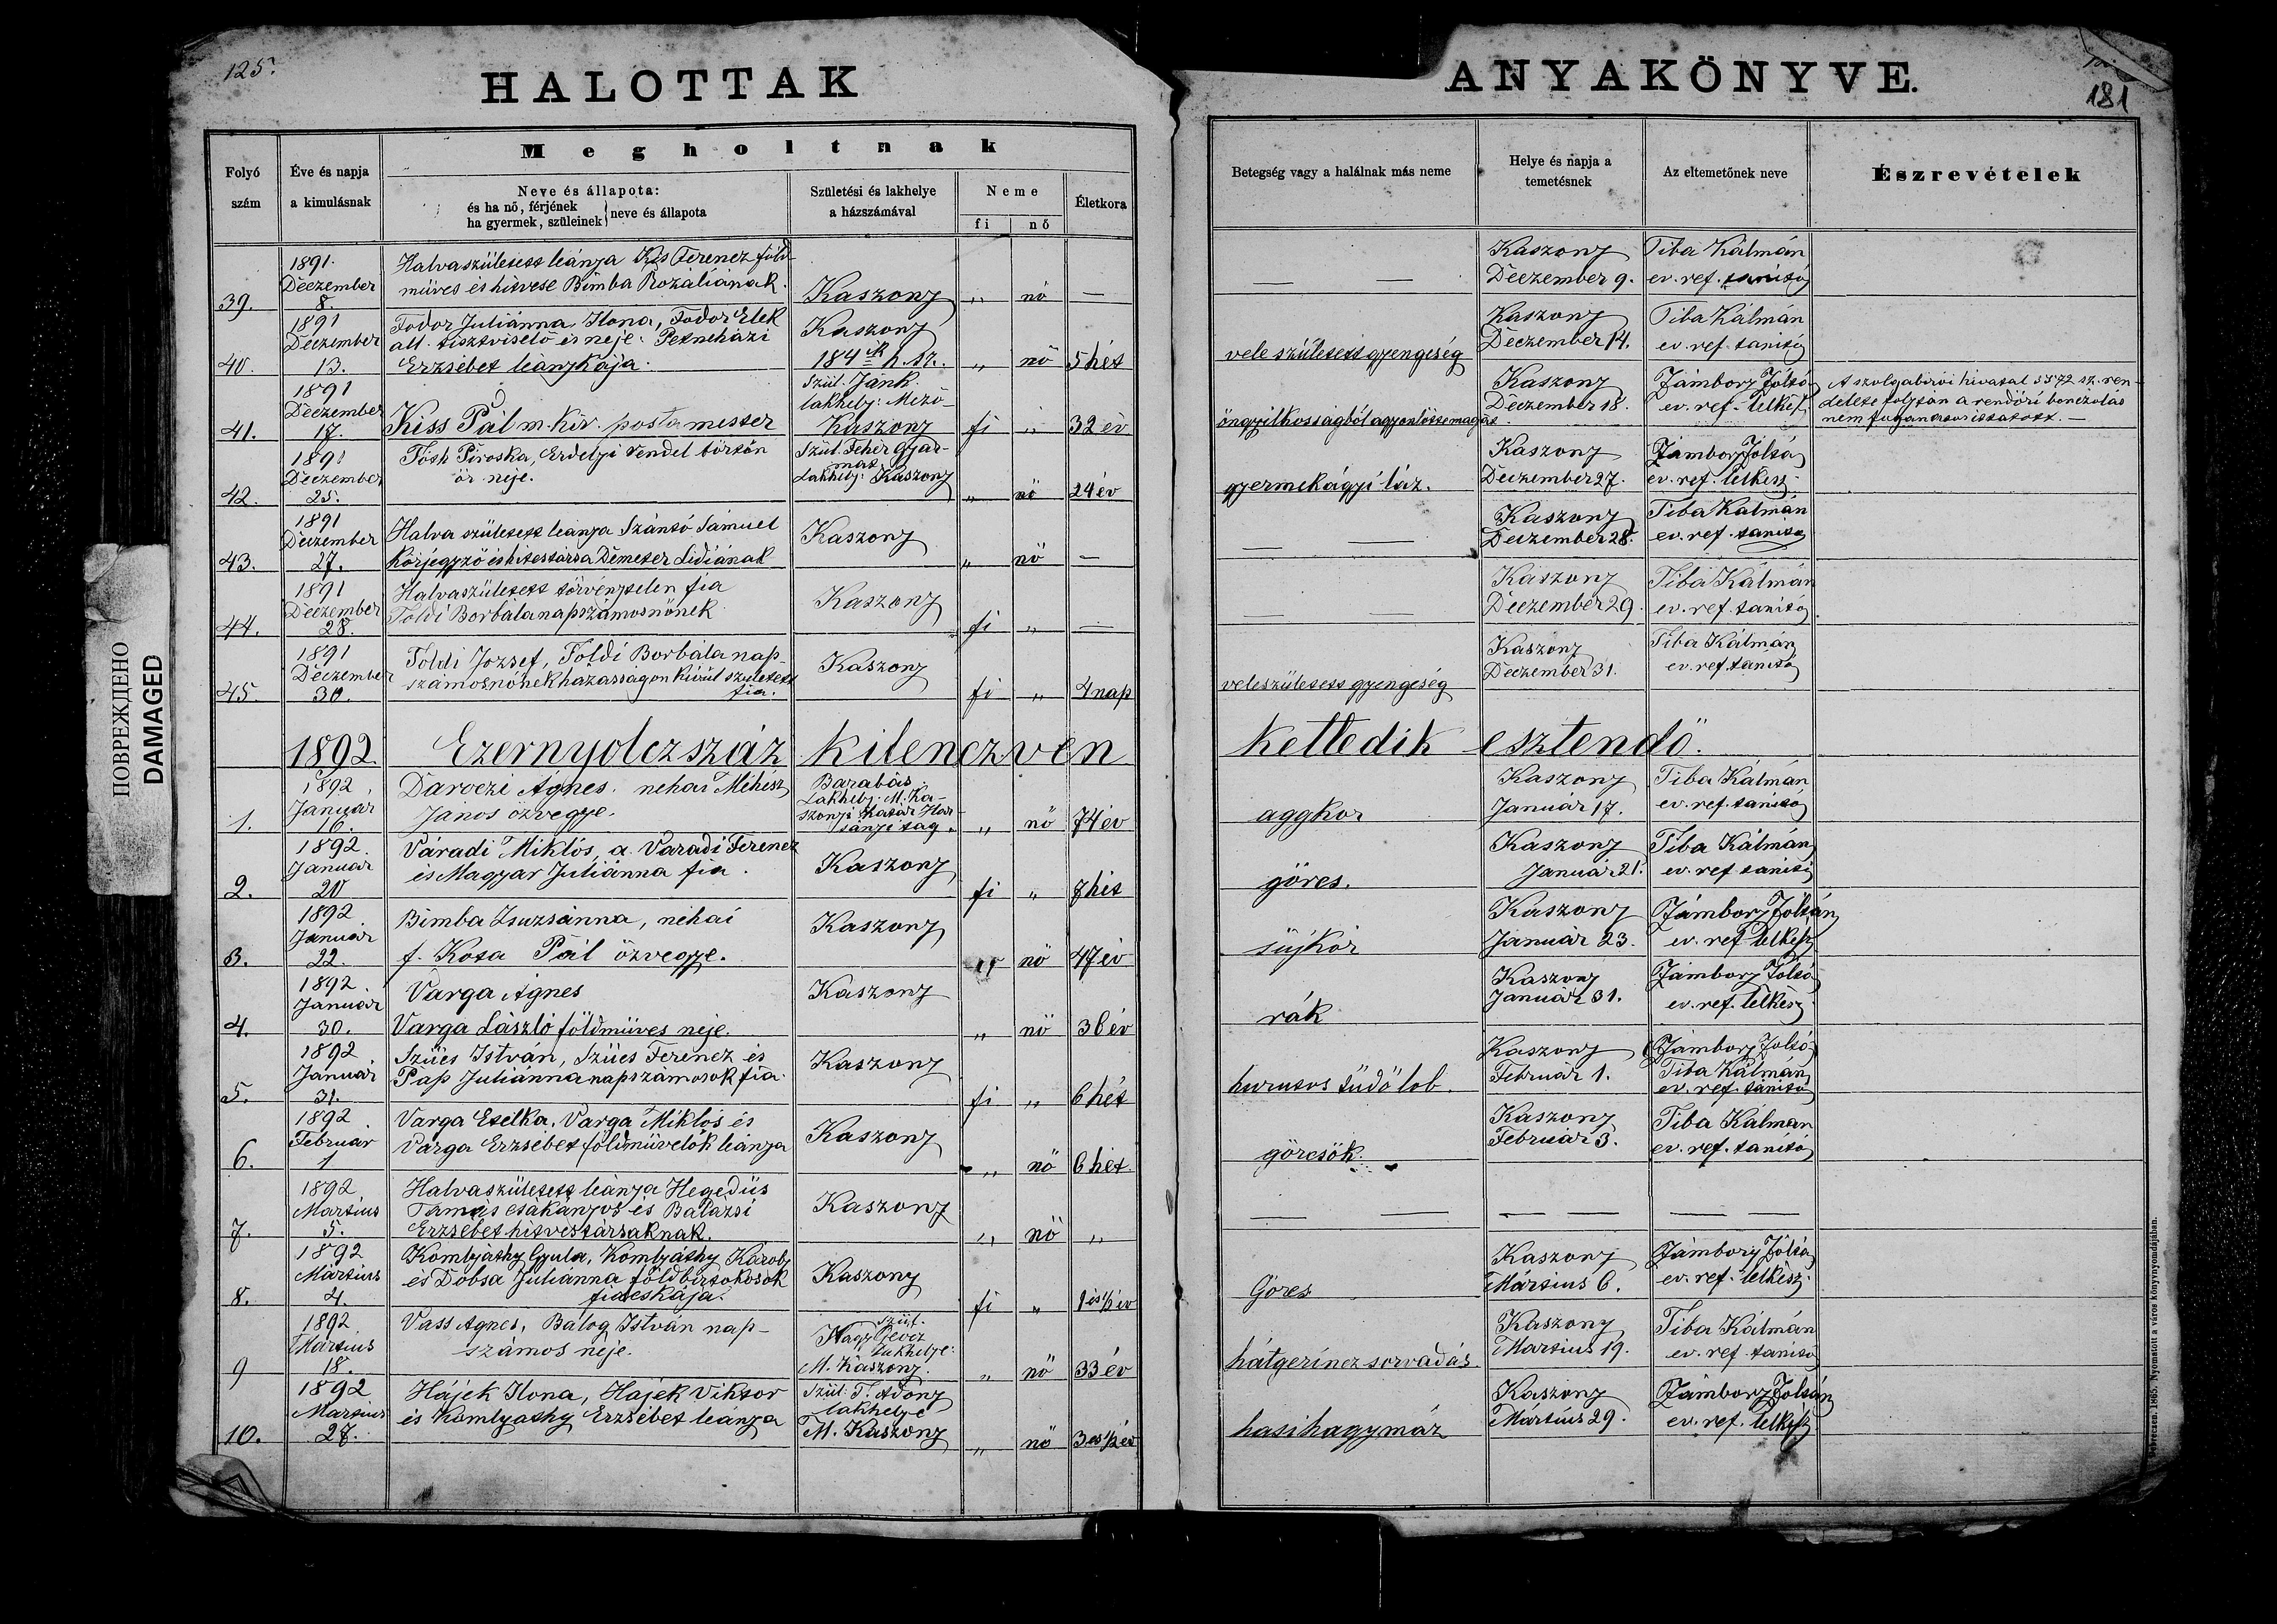 125.
HALOTTAK
Megholtnak
Folyó
szám
Éve és napja
a kimulásnak
Neve és állapota:
és ha nő, férjének
ha gyermek, szüleinek
neve és állapota
Születési és lakhelye
a házszámával
Neme
fi
nő
Életkora
39.
1891.
Deczember
8.
Halvaszületett leánya Kis Ferencz föld-
müves és hitvese Bimba Rozáliának.
Kaszony
„ nö —
40.
1891
Deczember
13.
Fodor Juliánna, Ilona, Fodor Elek
áll. tisztviselő és neje: Petneházi
Erzsébet leánykája.
Kaszony
184ik h. sz.
„ nö 5 hét
41.
1891
Deczember
17.
Kiss Pál m. kir. posta mester
Szül. Jánk.
lakhely: Mező-
kaszony
fi „ 32 év
42.
1891
Deczember
25.
Tóth Piroska, Erdélyi Vendel börtön
őr neje.
Szül. Fehér Gyar-
mat
Lakhely: Kaszony
„ nö 24 év
43.
1891
Deczember
27.
Halva született leánya Szántó Sámuel
Körjegyző és hitestársa Demeter Lidiának
Kaszony
„ nö —
44.
1891
Deczember
28.
Halvaszületett törvénytelen fia
Földi Borbála napszámosnőnek
Kaszony
fi „ —
45.
1891
Deczember
30.
Földi József, Földi Borbála nap-
számosnőnek házasságon kívül született
fia.
Kaszony
fi „ 4 nap
1892. Ezernyolczszáz kilenczven
1.
1892.
Január
16.
Daróczi Ágnes. néhai Méhész
János özvegye.
Barabás.
Lakhely: M. Ka-
szonyi Határ Har-
sányi tag.
„ nö 74 év
2.
1892.
Január
20
Váradi Miklós, a Váradi Ferencz
és Magyar Juliánna fia.
Kaszony
fi „ 8 hét
3.
1892
Január
22.
Bimba Zsuzsánna, néhai
f. Kósa Pál özvegye.
Kaszony
„ nö 47 év
4.
1892.
Január
30.
Varga Ágnes
Varga László földmüves neje.
Kaszony
„ nö 36 év
5.
1892.
Január
31.
Szücs István, Szücs Ferencz és
Pap Juliánna napszámosok fia.
Kaszony
fi „ 6 hét
6.
1892
Február
1
Varga Etelka, Varga Miklós és
Varga Erzsébet földmüvelők leánya
Kaszony
„ nö 6 hét
7.
1892
Martius
5.
Halvaszületett leánya Hegedüs
Tamás csákányos és Balázsi
Erzsébet hitvestársaknak.
Kaszony
„ nö „
8.
1892
Mártius
4.
Komlyáthy Gyula, Komlyáthy Károly
és Dobsa Juliánna földbirtokosok
fiacskája.
Kaszony
fi „ 1 és ½ év
9
1892
Mártius
18.
Vass Ágnes, Balog István nap-
számos neje.
Szül.
Nagy
Lakhelye:
M. Kaszony.
„ nö 33 év
10.
1892
Martius
28.
Hájek Ilona, Hajek Viktor
és Komlyathy Erzsébet leánya
Szül: T. Adony
lakhelye
M. Kaszony
„ nö 3 és ½ év
ANYAKÖNYVE.
181
Betegség vagy a halálnak más neme
Helye és napja a
temetésnek
Az eltemetőnek neve
Észrevételek
— —
Kaszony
Deczember 9.
Tiba Kálmán
ev. ref. tanitó
vele született gyengeség
Kaszony
Deczember 14.
Tiba Kálmán
ev. ref. tanitó
öngyilkosságból agyonlötte magát.
Kaszony
Deczember 18.
Jámbory Zoltán
ev. ref. lelkész
A szolgabírói hivatal 5572 sz. ren-
delete folytán a rendőri bonczolás
nem foganatosittatott. —
gyermekágyi láz.
Kaszony
Deczember 27.
Jámbory Zoltán
ev. ref. lelkész.
— —
Kaszony
Deczember 28.
Tiba Kálmán
ev. ref. tanitó
— —
Kaszony
Deczember 29.
Tiba Kálmán
ev. ref. tanitó
veleszületett gyengeség
Kaszony
Deczember 31.
Tiba Kálmán
ev. ref. tanitó
kettedik esztendő.
aggkor
Kaszony
Január 17.
Tiba Kálmán
ev. ref. tanitó
görcs.
Kaszony
Január 21.
Tiba Kálmán
ev. ref. tanitó
sűjkór
Kaszony
Január 23.
Jámbory Zoltán
ev. ref. lelkész
rák
Kaszony
Január 31.
Jámbory Zoltán
ev. ref. lelkész
hurutos tüdőlob.
Kaszony
Február 1.
Jámbory Zoltán
Tiba Kálmán
ev. ref. tanitó
görcsök.
Kaszony
Február 3.
Tiba Kálmán
ev. ref. tanitó
— — — — — —
Görcs
Kaszony
Mártius 6.
Jámbory Zoltán
ev. ref. lelkész.
hátgerincz sorvadás.
Kaszony
Martius 19.
Tiba Kálmán
ev. ref. tanitó
hasihagymáz
Kaszony
Mártius 29.
Jámbory Zoltán
ev. ref. lelkész
Debreczen. 1865. Nyomatott a város könyvnyomdájában.
ПОВРЕЖДЕНО
DAMAGED